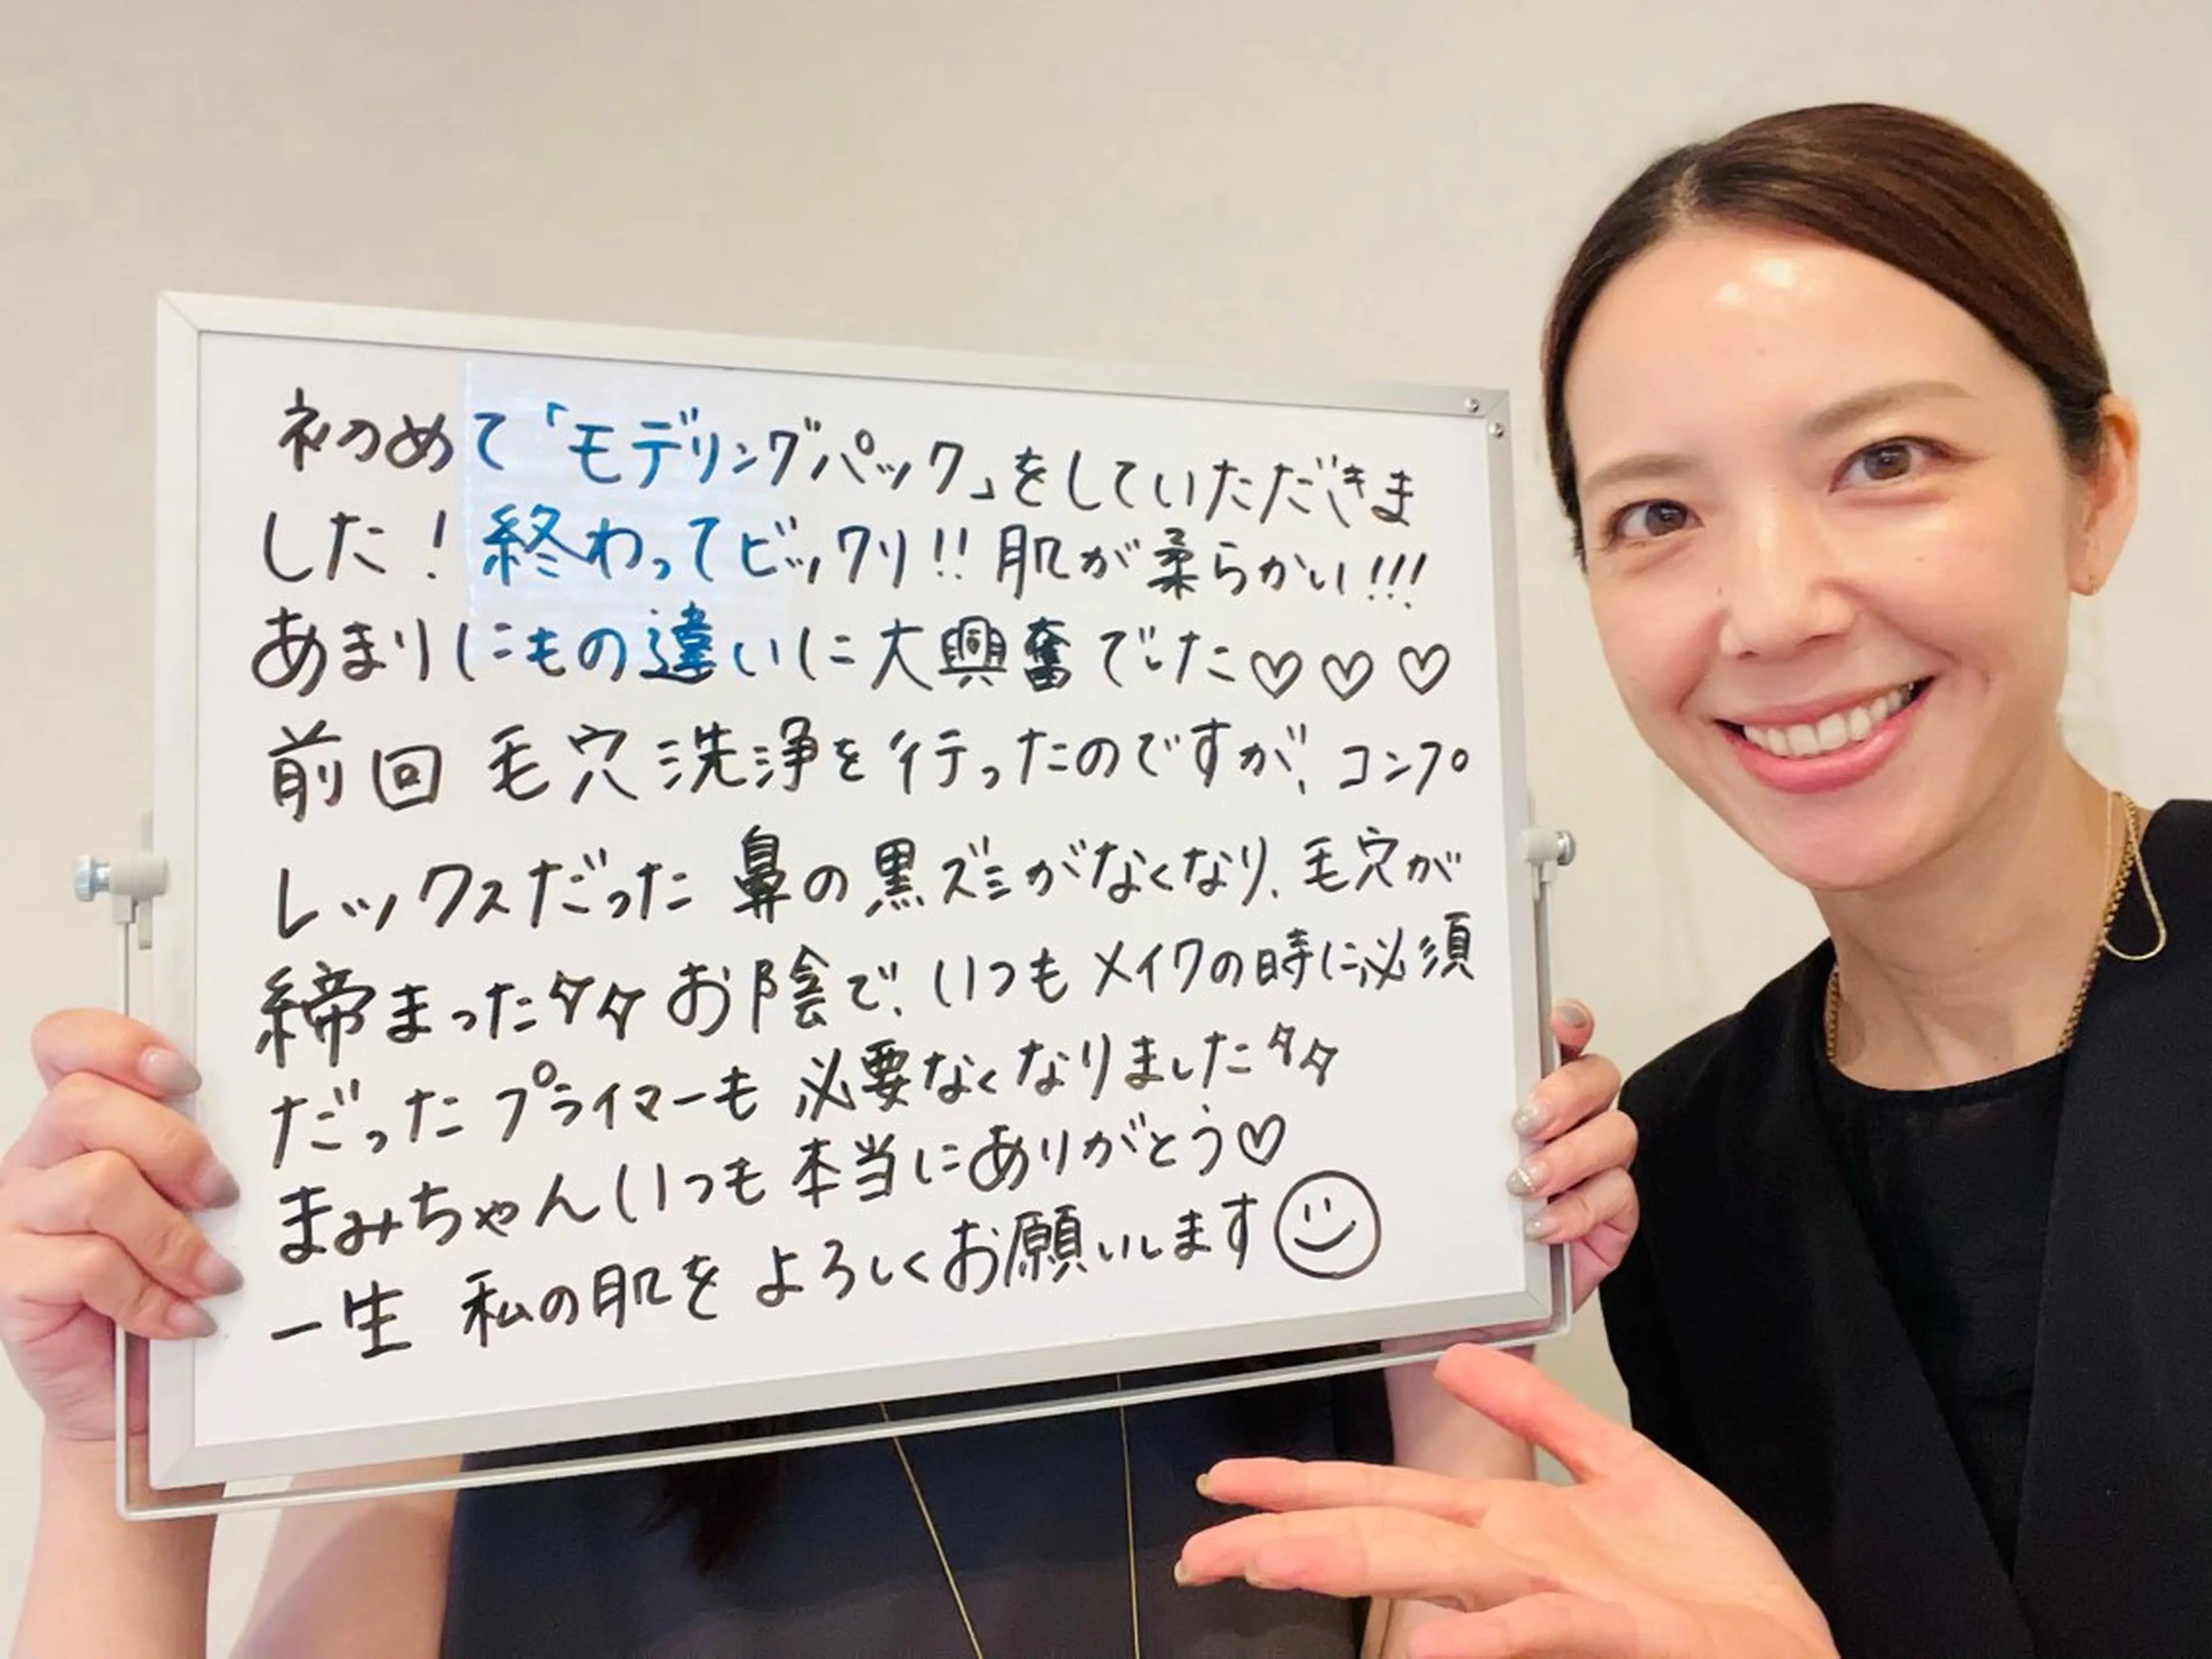 初めて「モデリングパック」をしていただきま
した！終わってビックリ!!肌が柔らかい!!!
あまりにもの違いに大興奮でした♡♡♡
前回 毛穴洗浄を行ったのですが、コンプ
レックスだった鼻の黒ズミがなくなり、毛穴が
締まった☆☆お陰で、いつもメイクの時に必須
だったプライマーも必要なくなりました☆☆
まみちゃんいつも本当にありがとう♡
一生 私の肌をよろしくお願いします☺